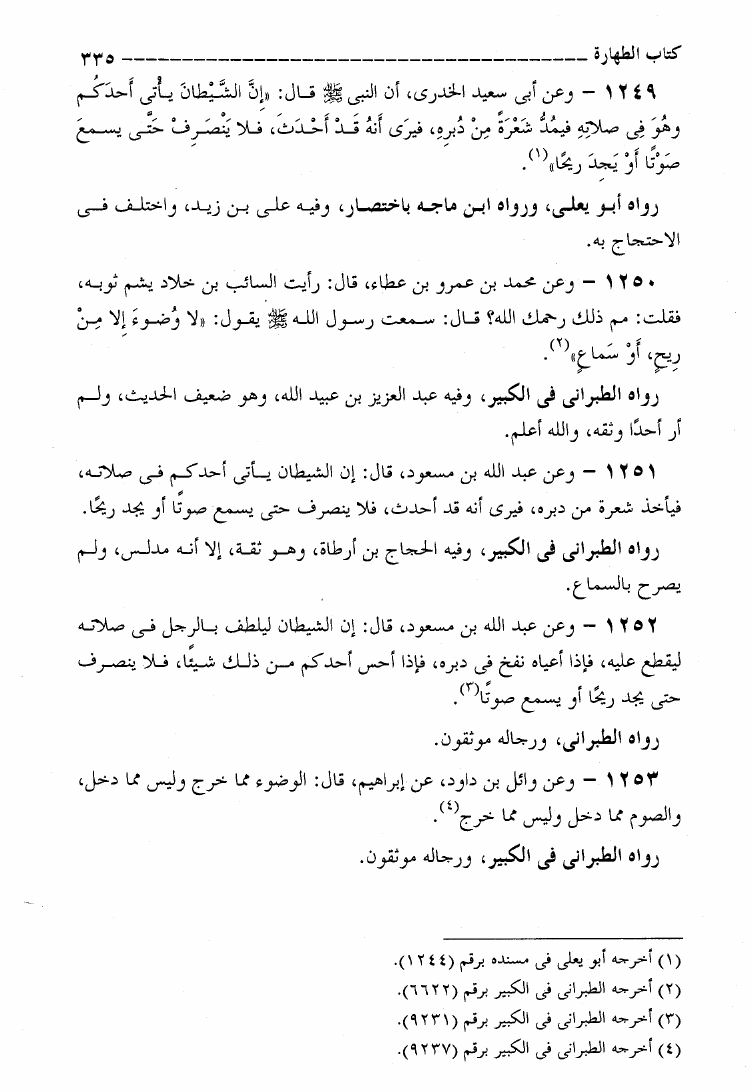 كتاب الطهارة ــــــــــــــــــــــــــــــــــــــــ ٣٣٥
١٢٤٩ - وعن أبى سعيد الخدرى، أن النبى ﷺ قال: «إِنَّ الشَّيْطانَ يـأْتى أَحدَكُـم
وهُوَ فِى صلاتِهِ فيمُدُّ شَعْرَةً مِنْ دُبرِهِ، فيرَى أَنهُ قَـدْ أَحْـدَثَ، فـلا يَنْصَـرِفْ حَتَّـى يسـمعَ
صَوْتًا أَوْ يَجِدَ رِيحًا»(١).
رواه أبـو يعلـى، ورواه ابـن ماجـه باختصـار، وفيـه علـى بـن زيـد، واختلـف فـى
الاحتجاج به.
١٢٥٠ - وعن محمد بن عمرو بن عطاء، قال: رأيت السائب بن خلاد يشم ثوبـه،
فقلت: مم ذلك رحمك الله؟ قـال: سـمعت رسـول اللـه ﷺ يقـول: «لا وُضُـوءَ إِلا مِـنْ
رِيحٍ، أَوْ سَماعٍ»(٢).
رواه الطبرانى فى الكبير، وفيه عبد العزيز بن عبيد الله، وهو ضعيف الحديث، ولـم
أر أحدًا وثقه، والله أعلم.
١٢٥١ - وعن عبد الله بن مسعود، قال: إن الشيطان يـأتى أحدكـم فـى صلاتـه،
فيأخذ شعرة من دبره، فيرى أنه قد أحدث، فلا ينصرف حتى يسمع صوتًا أو يجد ريحًا.
رواه الطبرانى فى الكبير، وفيه الحجاج بن أرطاة، وهـو ثقـة، إلا أنـه مدلـس، ولـم
يصرح بالسماع.
١٢٥٢ - وعن عبد الله بن مسعود، قال: إن الشيطان ليلطف بـالرجل فـى صلاتـه
ليقطع عليه، فإذا أعياه نفخ فى دبره، فإذا أحس أحدكم مـن ذلـك شـيئًا، فـلا ينصـرف
حتى يجد ريحًا أو يسمع صوتًا(٣).
رواه الطبرانى، ورجاله موثقون.
١٢٥٣ - وعن وائل بن داود، عن إبراهيم، قال: الوضوء مما خرج وليس مما دخل،
والصوم مما دخل وليس مما خرج(٤).
رواه الطبرانى فى الكبير، ورجاله موثقون.
(١) أخرجه أبو يعلى فى مسنده برقم (١٢٤٤).
(٢) أخرجه الطبرانى فى الكبير برقم (٦٦٢٢).
(٣) أخرجه الطبرانى فى الكبير برقم (٩٢٣١).
(٤) أخرجه الطبرانى فى الكبير برقم (٩٢٣٧).